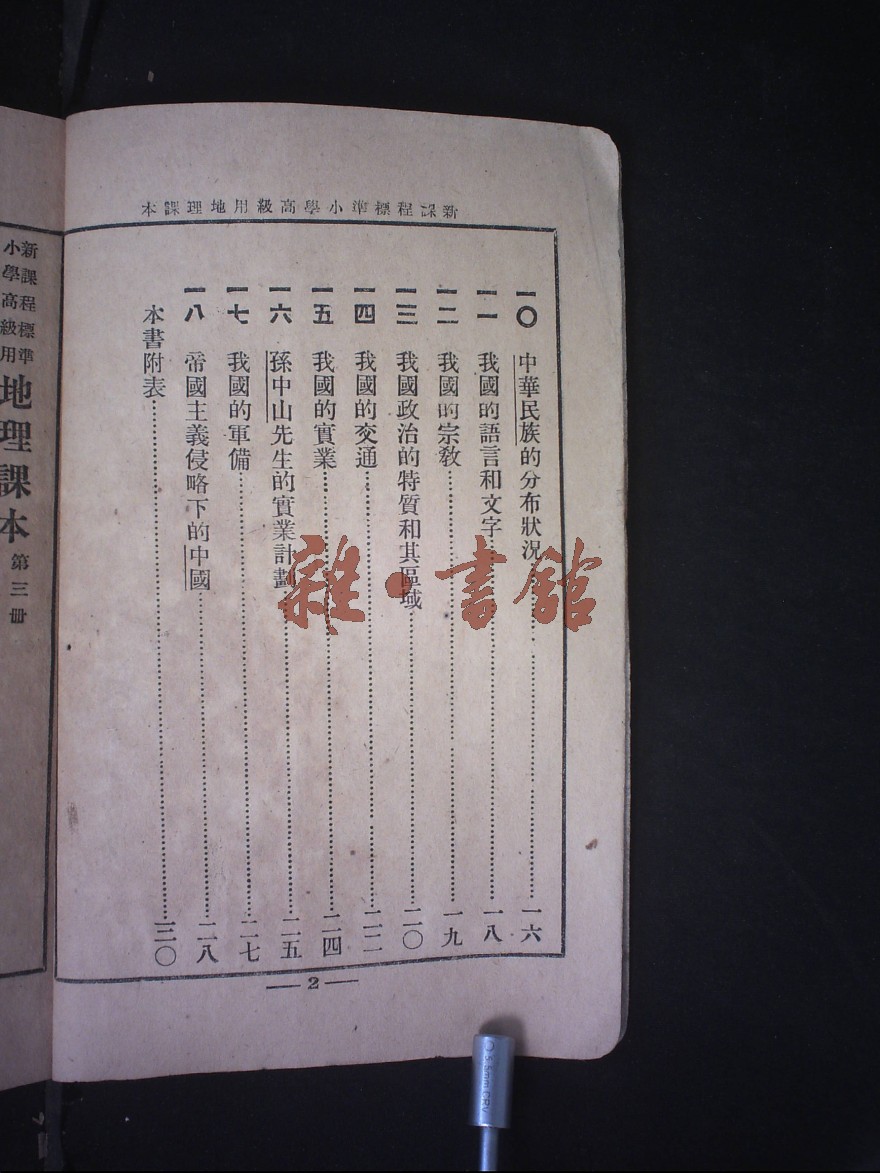 新課程標準小學高級用地理課本
一〇　中華民族的分布狀況……一六
一一　我國的語言和文字……一八
一二　我國的宗教……一九
一三　我國政治的特質和其區域……二〇
一四　我國的交通……二二
一五　我國的實業……二四
一六　孫中山先生的實業計劃……二五
一七　我國的軍備……二七
一八　帝國主義侵略下的中國……二八
本書附表……三〇
—2—
新課程標準
小學高級用
地理課本 第三冊
雜·書館